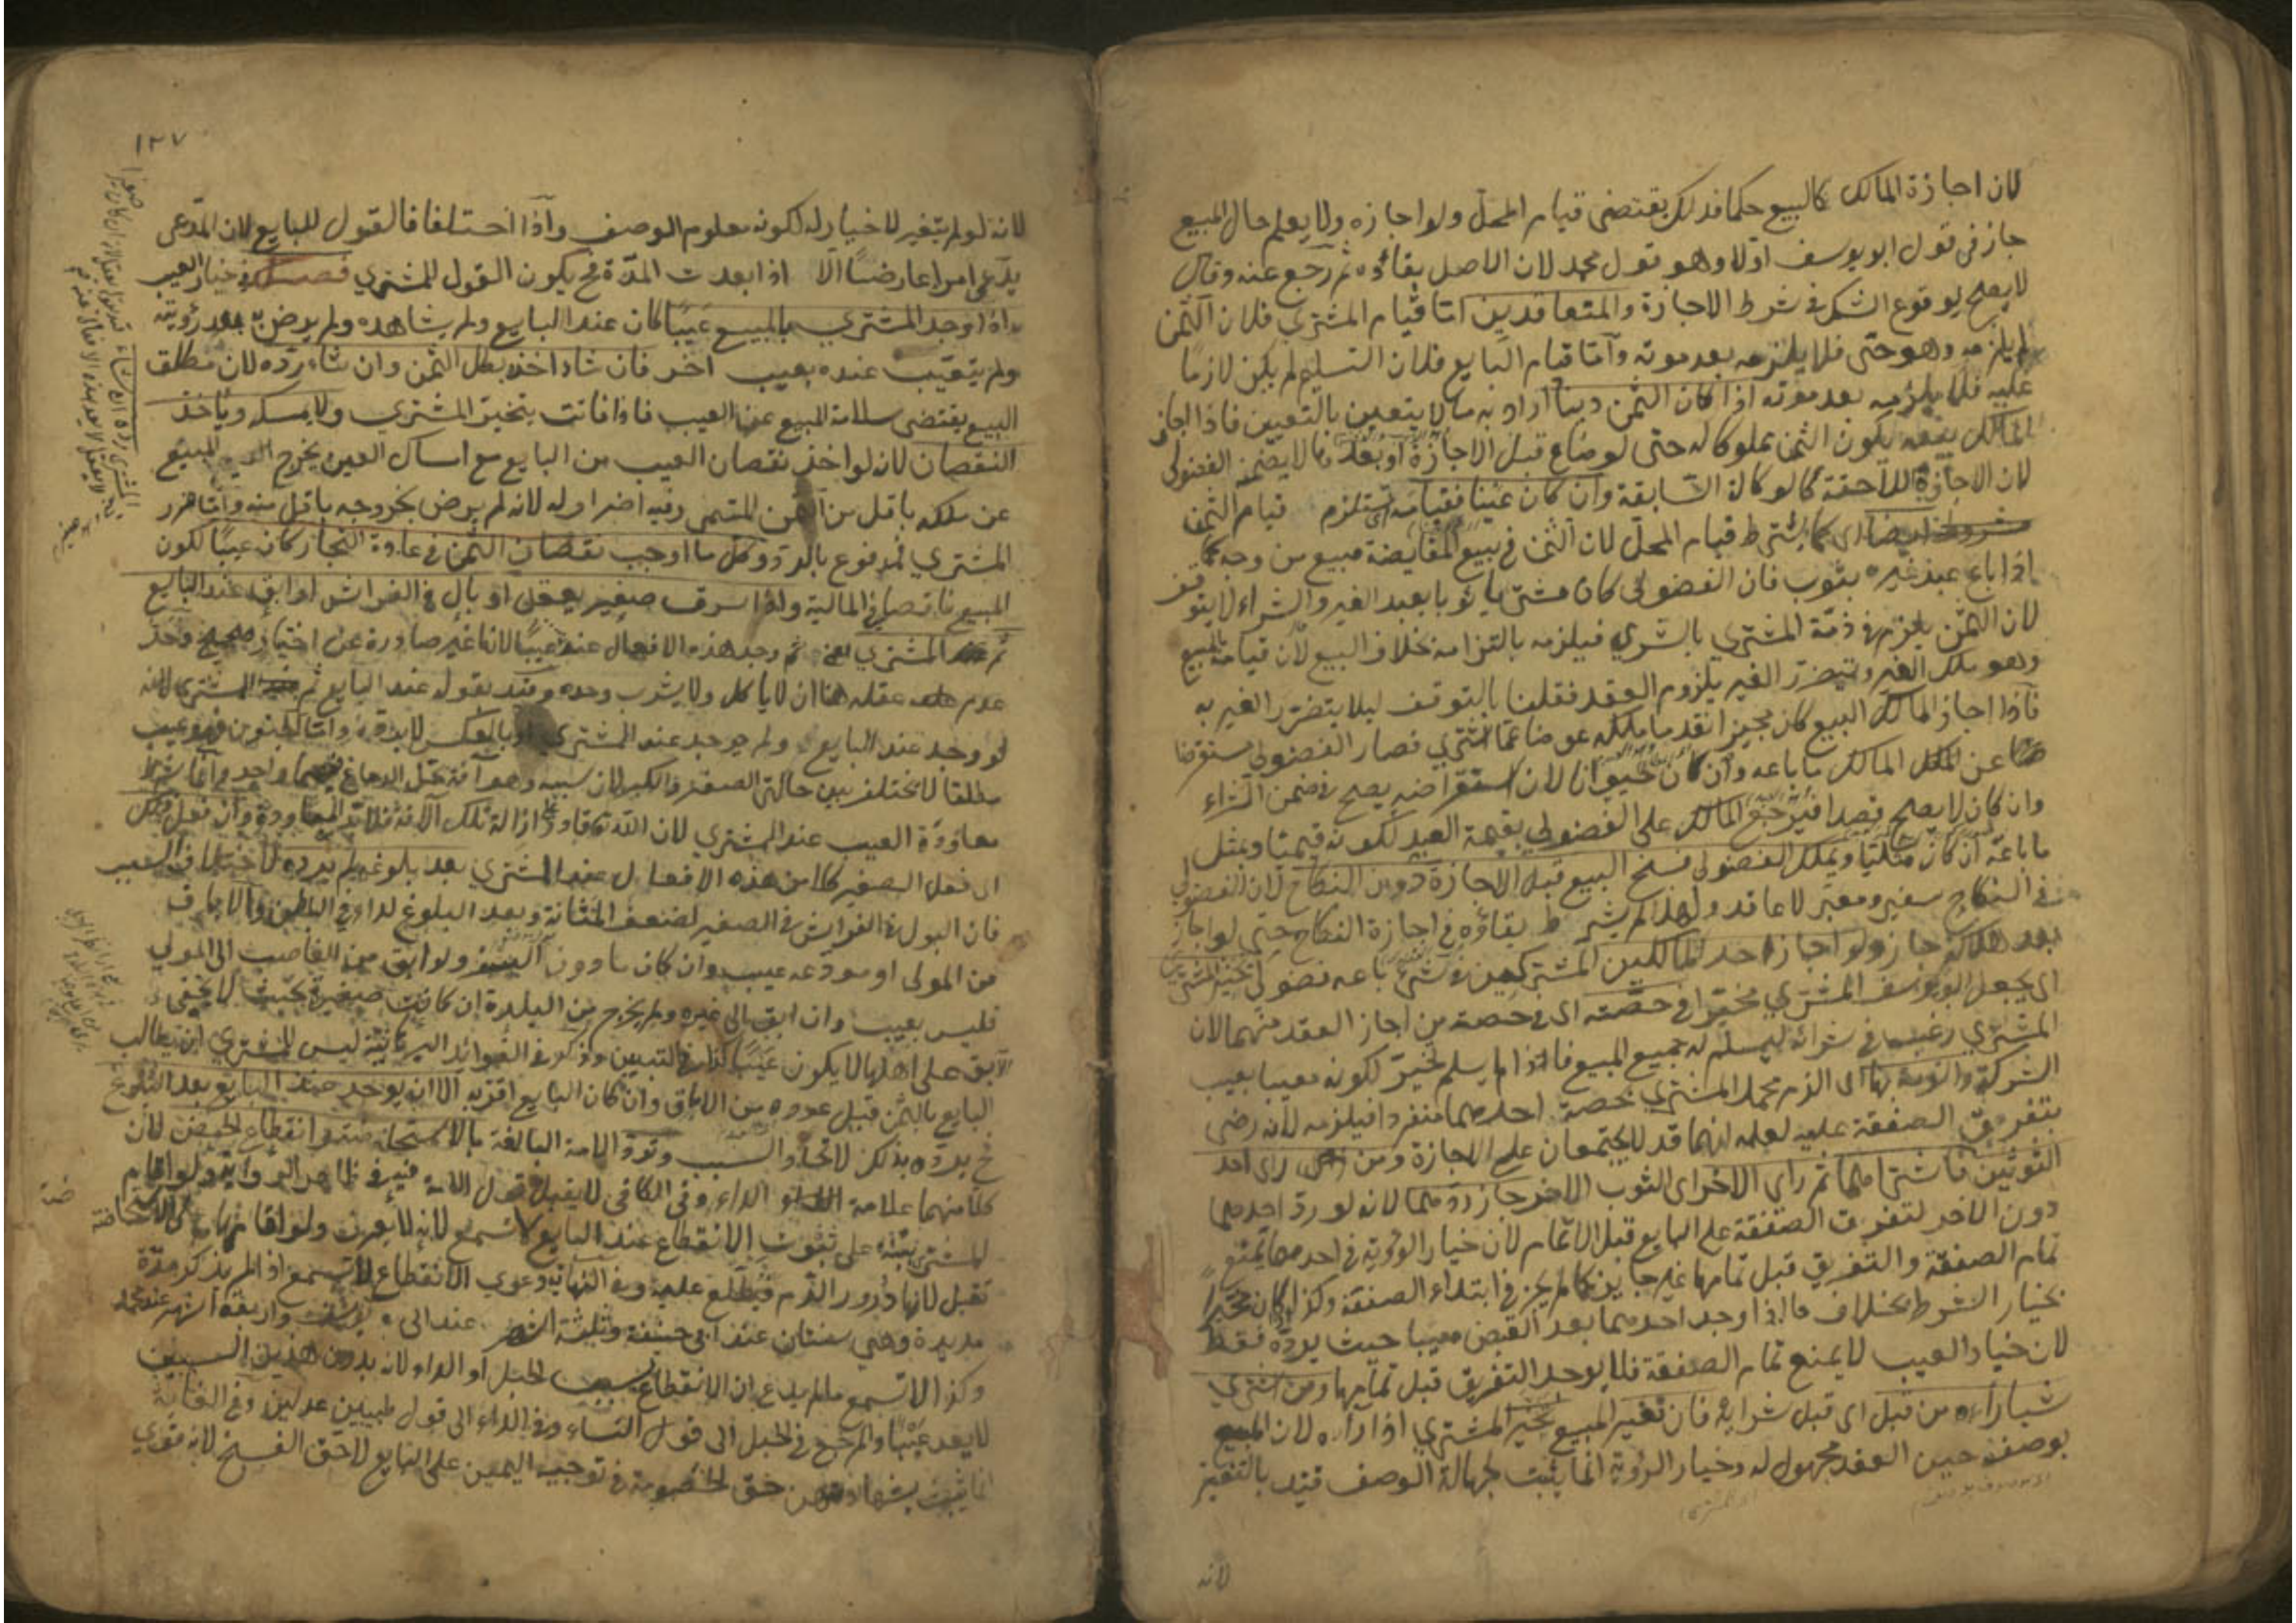 لان اجازة المالك كالبيع حكما فذلك يقتضى قيام المحل ولو اجازه ولا يعلم حال المبيع
جاز فى قول ابو يوسف اولا وهو قول محمد لان الاصل بقاؤه ثم رجع عنه وقال
لا يصح لوقوع الشك فى شرط الاجازة والمتعاقدين اما قيام المشتري فلان الثمن
يلزمه وهو حتى فلا يلزمه بعد موته وآما قيام البايع فلان التسليم لم يكن لازما
عليه فلا يلزمه بعد موته اذا كان الثمن دينا اراد به ما لا يتعين بالتعيين فاذا اجاز
المالك بيعه يكون الثمن مملوكا له حتى لو ضاع قبل الاجازة او بعدها لا يضمن الفضولى
لان الاجازة اللاحقة كالوكالة السابقة وان كان عينا فقيامه يستلزم قيام الثمن
ايضا اى كما يشترط قيام المحل لان الثمن فى بيع المقايضة مبيع من وجه كما
اذا باع عبد غيره بثوب فان الفضولى كان مشتريا ثوبا بعبد الغير والشراء لا يتوقف
لان الثمن يلزم فى ذمة المشترى بالشرى فيلزمه بالتزامه بخلاف البيع لان قيامه بالمبيع
وهو ملك الغير ويتضرر الغير بلزوم العقد فقلنا بالتوقف ليلا يتضرر الغير به
فآذا اجاز المالك البيع كان مجيزا نقد ما ملكه عوضا عما اشتري فصار الفضولي مستقرضا
عن المالك ما باعه وان كان حيوانا لان استقراضه يصح فى ضمن الشراء
وان كان لا يصح قصدا فيرجع المالك على الفضولي بقيمة العبد لكونه قيميا وبمثل
ما باعه ان كان مثليا ويملك الفضولى فسخ البيع قبل الاجازة دون النكاح لان الفضولي
فى النكاح سفير ومعبر لا عاقد ولهذا لم يشترط بقاؤه فى اجازة النكاح حتى لو اجاز
بعد هلاكه جاز ولو اجاز احد المالكين المشتركين فى شئ باعه فضولى يخير المشتري
اى يجعل ابو يوسف المشترى مخيرا فى حصته اى فى حصة من اجاز العقد منهما لان
المشترى رغب فى شرائه ليسلم له جميع المبيع فاذا لم يسلم يخير لكونه معيبا بعيب
الشركة والزمه بها اى الزم محمد المشترى بحصة احدهما منفردا فيلزمه لانه رضى
بتفريق الصفقة عليه لعلمه انهما قد لا يجتمعان على الاجازة ومن راى احد
الثوبين فاشتراهما ثم راي الاخر اى الثوب الاخر جاز ردهما لانه لو رد احدهما
دون الاخر لتفرق الصفقة على البايع قبل الاتمام لان خيار الرؤية فى احدهما يمنع
تمام الصفقة والتفريق قبل تمامها غير جايز كما لم يجز فى ابتداء الصفقة وكذا لو كان مخيرا
بخيار الشرط بخلاف ما اذا وجد احدهما بعد القبض معيبا حيث يرده فقط
لان خيار العيب لا يمنع تمام الصفقة فلا يوجد التفريق قبل تمامها ومن اشتري
شيا رآه من قبل اى قبل شرائه فان تغير المبيع يخير المشتري اذا رآه لان المبيع
بوصفه حين العقد مجهول له وخيار الرؤية انما يثبت لجهالة الوصف قيد بالتغير
لانه
١٣٧
لانه لو لم يتغير لا خيار له لكونه معلوم الوصف وآذا اختلفا فالقول للبايع لان المدعى
يدعى امرا عارضا الا اذا بعدت المدة فح يكون القول للمشتري فصل فى خيار العيب
واذا وجد المشترى بالمبيع عيبا كان عند البايع ولم يشاهده ولم يرض به بعد رؤيته
ولم يتعيب عنده بعيب اخر فان شاء اخذه بكل الثمن وان شاء رده لان مطلق
البيع يقتضى سلامة المبيع عن العيب فاذا فاتت يتخير المشترى ولا يمسكه وياخذ
النقصان لانه لو اخذ نقصان العيب من البايع مع امساك العين يخرج المبيع
عن ملكه باقل من الثمن المسمى وفيه اضرار له لانه لم يرض بخروجه باقل منه وآما ضرر
المشتري فمدفوع بالرد وكل ما اوجب نقصان الثمن فى عادة التجار كان عيبا لكون
المبيع ناقصا فى المالية واذا سرق صغير يعقل او بال فى الفراش او ابق عند البايع
ثم عند المشترى يعنى ثم وجد هذه الافعال عنده عيبا لانها غير صادرة عن اختيار صحيح وحد
عدم عقله هنا ان لا ياكل ولا يشرب وحده وقيد بقوله عند البايع ثم المشترى لانه
لو وجد عند البايع ولم يوجد عند المشترى او بالعكس لا يرده وآما الجنون فهو عيب
مطلقا لا يختلف بين حالتى الصغر والكبر لان سببه وهو آفة تحل الدماغ فيهما واحد وانما شرط
معاودة العيب عند المشتري لان الله تعالى قادر على ازالة تلك الآفة فلا بد المعاودة وان فعل
اى فعل الصغير كلا من هذه الافعال عند المشتري بعد بلوغه لم يرده لاختلاف السبب
فان البول فى الفراش فى الصغير لضعف المثانة وبعد البلوغ لداء فى الباطن والاباق
من المولى او مودعه عيب وان كان ما دون السفر ولو ابق من الغاصب الى المولي
فليس بعيب وان ابق الى غيره ولم يخرج من البلدة ان كانت صغيرة بحيث لا يخفى
الآبق على اهلها لا يكون عيبا كذا فى التبيين وذكر فى الفوائد ليس للمشتري ان يطالب
البايع بالثمن قبل عوده من الاباق وان كان البايع اقر به الا ان يوجد عند البايع بعد البلوغ
فح يرده بذلك لاتحاد السبب وترد الامة البالغة بالاستحاضة وانقطاع الحيض لان
كلا منهما علامة الداء وفى الكافى لا يقبل قول الامة فيه فى ظاهر الرواية ولو اقام
المشترى بينة على ثبوت الانقطاع عند البايع لا تسمع لانه لا يعرف ولو اقامها على الاستحاضة
تقبل لانها درور الدم فيطلع عليه وفى النهاية دعوى الانقطاع لا تسمع اذا لم يذكر مدة
مديدة وهى سنتان عند ابى حنيفة وثلثة اشهر عند ابى يوسف واربعة اشهر عند محمد
وكذا لا تسمع ما لم يدع ان الانقطاع بسبب الحبل او الداء لانه بدون هذين السببين
لا يعد عيبا والمرجع فى الحبل الى قول النساء وفى الداء الى قول طبيبين عدلين وفى الغاية
انما يثبت بشهادتهن حق الخصومة فى توجيه اليمين على البايع لا حق الفسخ لانه قوي